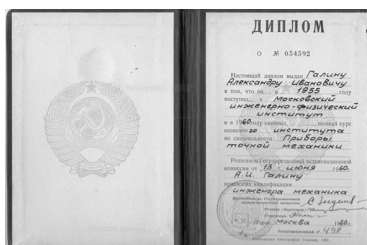 ДИПЛОМ
О № 054592
Настоящий диплом выдан Галину
Александру Ивановичу
в том, что он в 1955 году
поступил в Московский
инженерно-физический
институт
и в 1960 году окончил полный курс
названного института
по специальности Приборы
точной механики
Решением Государственной экзаменационной
комиссии от 13 июня 1960 г.
А.И. Галину
присвоена квалификация
инженера механика
Председатель Государственной
экзаменационной комиссии
Москва 1960 г.
Регистрационный № 498